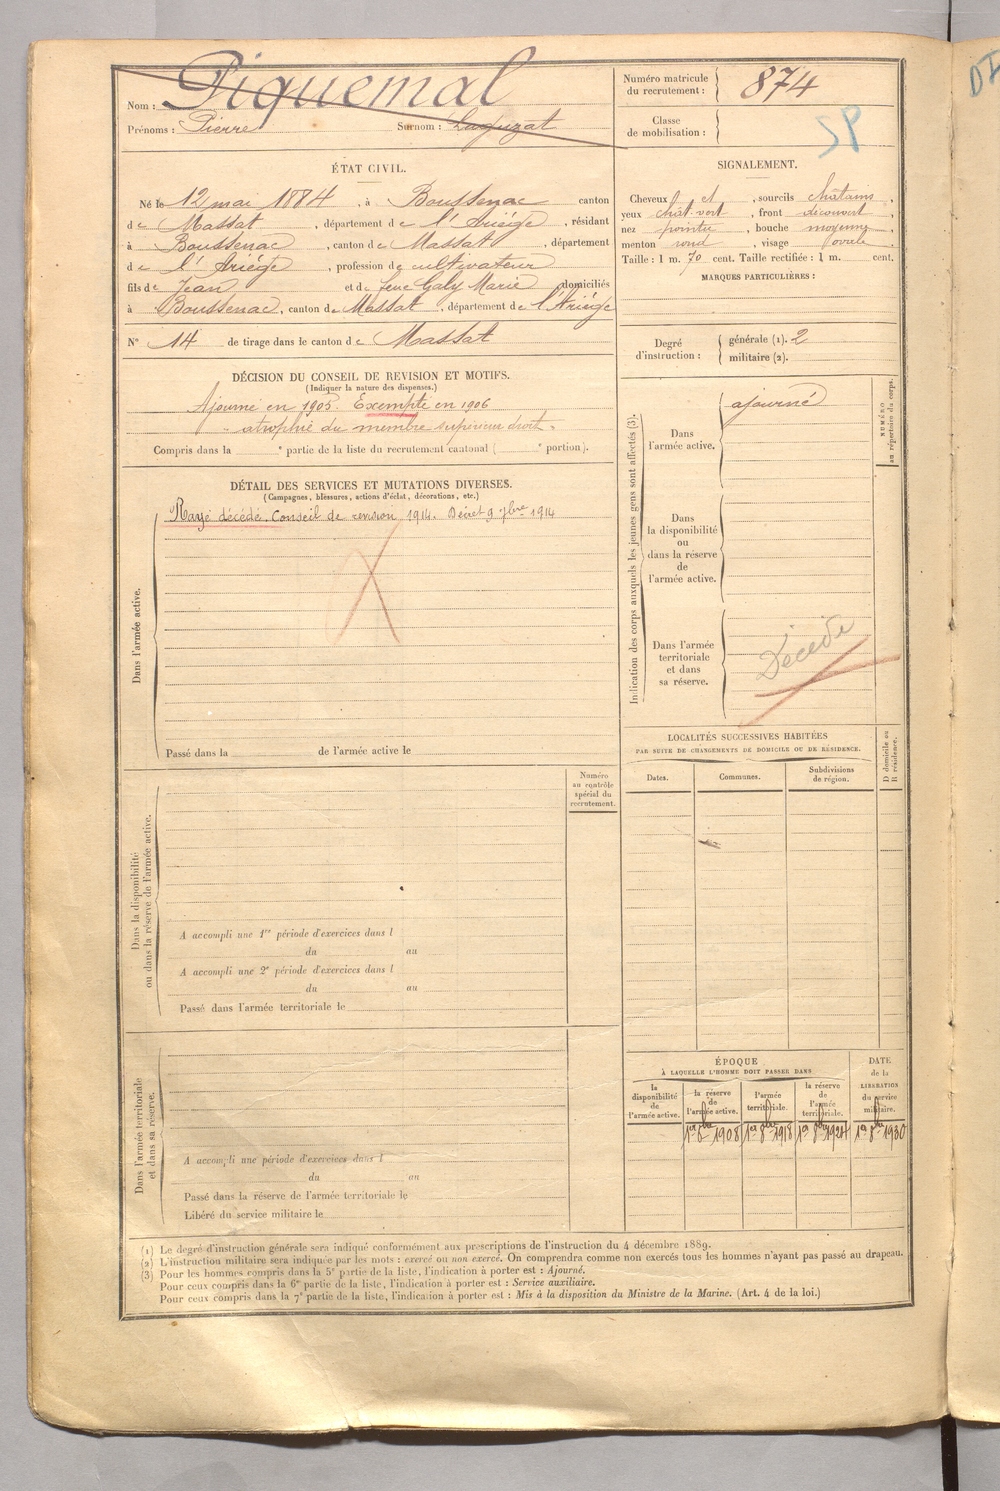 Nom : Piquemal
Prénoms : Pierre Surnom : Laguzat
Numéro matricule du recrutement : 874
Classe de mobilisation :
SP
ÉTAT CIVIL.
Né le 12 mai 1884, à Boussenac canton
de Massat, département de l'Ariége, résidant
à Boussenac, canton de Massat, département
de l'Ariége, profession de cultivateur
fils de Jean et de feue Galy Marie domiciliés
à Boussenac, canton de Massat, département de l'Ariége
N° 14 de tirage dans le canton de Massat
SIGNALEMENT.
Cheveux et, sourcils chatains,
yeux chat. vert, front découvert,
nez pointu, bouche moyenne,
menton rond, visage ovale.
Taille : 1 m. 70 cent. Taille rectifiée : 1 m. cent.
MARQUES PARTICULIÈRES :
Degré d'instruction : générale (1). 2
militaire (2).
DÉCISION DU CONSEIL DE REVISION ET MOTIFS.
(Indiquer la nature des dispenses.)
Ajourné en 1905. Exempté en 1906
"atrophie du membre supérieur droit".
Compris dans la e partie de la liste du recrutement cantonal ( e portion).
DÉTAIL DES SERVICES ET MUTATIONS DIVERSES.
(Campagnes, blessures, actions d'éclat, décorations, etc.)
Dans l'armée active.
Rayé décédé. Conseil de revision 1914. Décret 9 7bre 1914
Passé dans la de l'armée active le
Indication des corps auxquels les jeunes gens sont affectés (3).
NUMÉRO au répertoire du corps.
Dans l'armée active.
ajourné
Dans la disponibilité ou dans la réserve de l'armée active.
Dans l'armée territoriale et dans sa réserve.
Décédé
LOCALITÉS SUCCESSIVES HABITÉES
PAR SUITE DE CHANGEMENTS DE DOMICILE OU DE RÉSIDENCE.
Dates. Communes. Subdivisions de région.
D domicile ou R résidence.
Numéro au contrôle spécial du recrutement.
Dans la disponibilité ou dans la réserve de l'armée active.
A accompli une 1re période d'exercices dans l
du au
A accompli une 2e période d'exercices dans l
du au
Passé dans l'armée territoriale le
Dans l'armée territoriale et dans sa réserve.
A accompli une période d'exercices dans l
du au
Passé dans la réserve de l'armée territoriale le
Libéré du service militaire le
ÉPOQUE
À LAQUELLE L'HOMME DOIT PASSER DANS
la disponibilité de l'armée active.
la réserve de l'armée active.
l'armée territoriale.
la réserve de l'armée territoriale.
DATE de la LIBÉRATION du service militaire.
1er 8bre 1908 1er 8bre 1918 1er 8bre 1924 1er 8bre 1930
(1) Le degré d'instruction générale sera indiqué conformément aux prescriptions de l'instruction du 4 décembre 1889.
(2) L'instruction militaire sera indiquée par les mots : exercé ou non exercé. On comprendra comme non exercés tous les hommes n'ayant pas passé au drapeau.
(3) Pour les hommes compris dans la 5e partie de la liste, l'indication à porter est : Ajourné.
Pour ceux compris dans la 6e partie de la liste, l'indication à porter est : Service auxiliaire.
Pour ceux compris dans la 7e partie de la liste, l'indication à porter est : Mis à la disposition du Ministre de la Marine. (Art. 4 de la loi.)